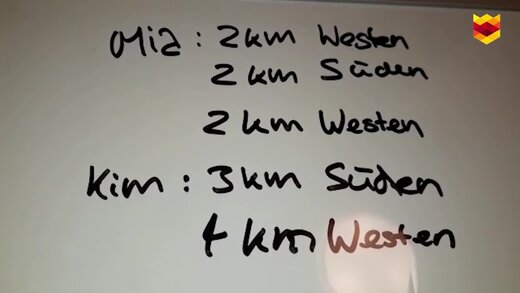 Mia : 2 km Westen
2 km Süden
2 km Westen
Kim : 3 km Süden
4 km Westen